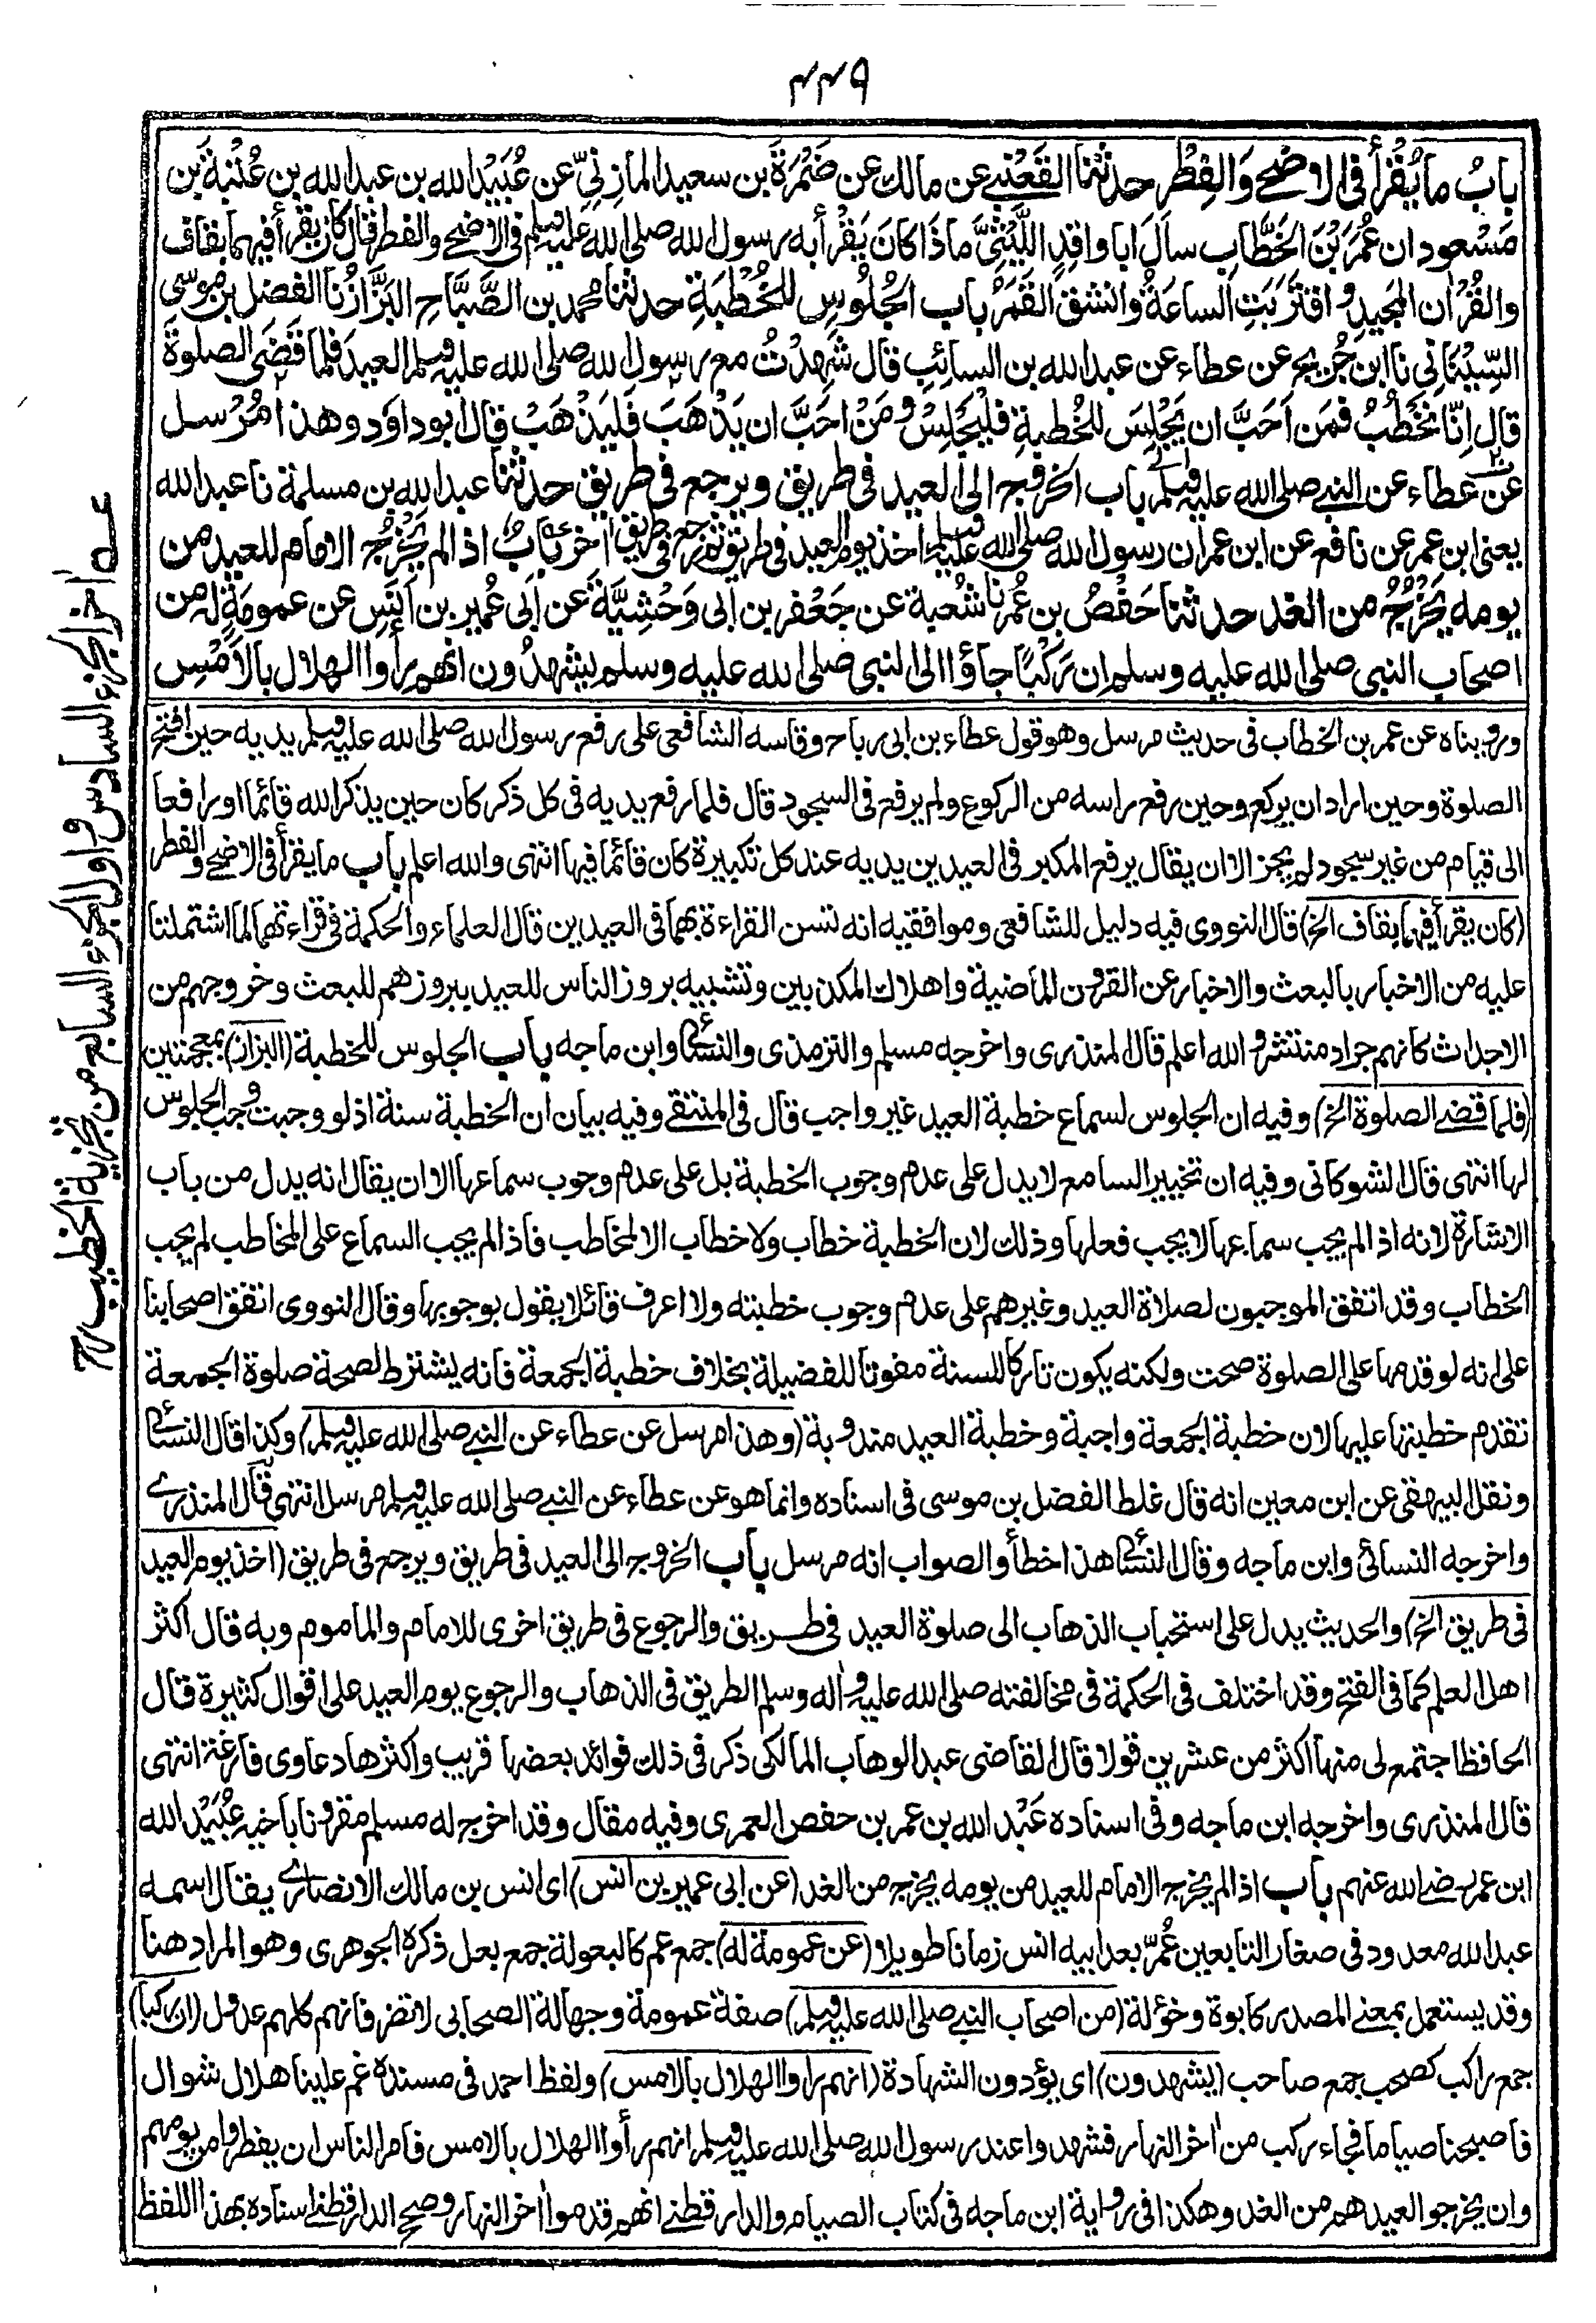 ٤٤٩
بابُ ما يُقْرَأ فى الاضْحٰى وَالفِطْر حدثنا القَعْنَبِى عن مالك عن ضَمْرَةَ بن سعيد المازِنِيّ عن عُبَيْدِ الله بن عبد الله بن عُتْبَةَ بن
مَسْعود ان عُمَرَ بْنَ الخَطّاب سألَ ابا واقِدٍ اللَّيْثِىَّ ماذَا كانَ يَقْرُأ به رسول الله صلى الله عليه وسلم فى الاضحٰى والفطر قال كان يقرأ فيهما بقاف
والقُرْان المجيدِ و اقتَرَبَتِ الساعَةُ وانشق القَمَرُ باب الجُلُوسِ للخُطْبَةِ حدثنا محمد بن الصَّبَّاحِ البَزَّازُ نا الفضل بن موسٰى
السِّيْنَانِى نا ابن جُرَيج عن عطاء عن عبد الله بن السائِبِ قال شَهِدْتُ مع رسول الله صلى الله عليه وسلم العيدَ فلما قَضَى الصلوةَ
قال اِنّا نَخْطُبُ فمَن اَحَبَّ ان يَجْلِسَ للخُطبةِ فَلْيَجْلِسْ و مَنْ احَبَّ ان يَذْهَبَ فَليَذْهَبْ قال ابو داوٗد وهذا مُرْسل
عن عطاء عن النبى صلى الله عليه وسلم باب الخروج الى العيد فى طريق ويرجع فى طريق حدثنا عبد الله بن مسلمة نا عبد الله
يعنى ابن عمر عن نافع عن ابن عمر ان رسول الله صلى الله عليه وسلم اخذ يوم العيد فى طريق ثم رجع فى طريق اخر بابُ اذا لم يَخْرُجْ الامام للعيد من
يومه يَخْرُجُ من الغد حدثنا حَفْصُ بن عُمَر نا شُعبة عن جَعْفر بن ابى وَحْشِيَّةَ عن ابى عُمير بن اَنَسٍ عن عمومَةٍ له من
اصحاب النبى صلى الله عليه وسلم ان رَكْبًا جاؤا الى النبى صلى الله عليه وسلم يشهدُون انهم رأوا الهلال بالاَمْسِ
وروينا ه عن عمر بن الخطاب فى حديث مرسل وهو قول عطاء بن ابى رباح وقاسه الشافعى على رفع رسول الله صلى الله عليه وسلم يديه حين افتتح
الصلوة وحين اراد ان يركع وحين رفع راسه من الركوع ولم يرفع فى السجود قال فلما رفع يديه فى كل ذكر كان حين يذكر الله قائما او رافعا
الى قيام من غير سجود لم يجز الا ان يقال يرفع المكبر فى العيدين يديه عند كل تكبيرة كان قائما فيها انتهى والله اعلم باب ما يقرأ فى الاضحٰى والفطر
(كان يقرأ فيهما بقاف الخ) قال النووى فيه دليل للشافعى وموافقيه انه تسن القراءة بهما فى العيدين قال العلماء والحكمة فى قراءتهما لما اشتملتا
عليه من الاخبار بالبعث والاخبار عن القرون الماضية واهلاك المكذبين وتشبيه بروز الناس للعيد ببروزهم للبعث وخروجهم من
الاجداث كانهم جراد منتشر و الله اعلم قال المنذرى واخرجه مسلم والترمذى والنسائى وابن ماجه باب الجلوس للخطبة (البزاز) بمعجمتين
(فلما قضى الصلوة الخ) وفيه ان الجلوس لسماع خطبة العيد غير واجب قال فى المنتقى وفيه بيان ان الخطبة سنة اذ لو وجبت وجب الجلوس
لها انتهى قال الشوكانى وفيه ان تخيير السامع لا يدل على عدم وجوب الخطبة بل على عدم وجوب سماعها الا ان يقال انه يدل من باب
الاشارة لانه اذا لم يجب سماعها لا يجب فعلها وذلك لان الخطبة خطاب ولا خطاب الا لمخاطب فاذا لم يجب السماع على المخاطب لم يجب
الخطاب وقد اتفق الموجبون لصلاة العيد وغيرهم على عدم وجوب خطبته ولا اعرف قائلا يقول بوجوبها وقال النووى اتفق اصحابنا
على انه لو قدمها على الصلوة صحت ولكنه يكون تاركا للسنة مفوتا للفضيلة بخلاف خطبة الجمعة فانه يشترط لصحة صلوة الجمعة
تقدم خطبتها عليها لان خطبة الجمعة واجبة وخطبة العيد مندوبة (وهذا مرسل عن عطاء عن النبى صلى الله عليه وسلم) وكذا قال النسائى
ونقل البيهقى عن ابن معين انه قال غلط الفضل بن موسى فى اسناده وانما هو عن عطاء عن النبى صلى الله عليه وسلم مرسل انتهى قال المنذرى
واخرجه النسائى وابن ماجه وقال النسائى هذا خطأ والصواب انه مرسل باب الخروج الى العيد فى طريق ويرجع فى طريق (اخذ يوم العيد
فى طريق الخ) والحديث يدل على استحباب الذهاب الى صلوة العيد فى طريق والرجوع فى طريق اخرى للامام والماموم وبه قال اكثر
اهل العلم كما فى الفتح وقد اختلف فى الحكمة فى مخالفته صلى الله عليه واله وسلم الطريق فى الذهاب والرجوع يوم العيد على اقوال كثيرة قال
الحافظ اجتمع لى منها اكثر من عشرين قولا قال القاضى عبد الوهاب المالكى ذكر فى ذلك فوائد بعضها قريب واكثرها دعاوى فارغة انتهى
قال المنذرى واخرجه ابن ماجه وفى اسناده عَبْد الله بن عمر بن حفص العمرى وفيه مقال وقد اخرج له مسلم مقرونا باخيه عُبَيْد الله
ابن عمر رضى الله عنهم باب اذا لم يخرج الامام للعيد من يومه يخرج من الغد (عن ابى عمير بن انس) اى انس بن مالك الانصارى يقال اسمه
عبد الله معدود فى صغار التابعين عُمِّرَ بعد ابيه انس زمانا طويلا (عن عمومة له) جمع عم كالبعولة جمع بعل ذكره الجوهرى وهو المراد هنا
وقد يستعمل بمعنى المصدر كابوة وخؤلة (من اصحاب النبى صلى الله عليه وسلم) صفة عمومة وجهالة الصحابى لا تضر فانهم كلهم عدول (ان ركبا)
جمع راكب كصحب جمع صاحب (يشهدون) اى يؤدون الشهادة (انهم راوا الهلال بالامس) ولفظ احمد فى مسنده غم علينا هلال شوال
فاصبحنا صياما فجاء ركب من اٰخر النهار فشهدوا عند رسول الله صلى الله عليه وسلم انهم رأوا الهلال بالامس فامر الناس ان يفطروا من يومهم
وان يخرجوا لعيدهم من الغد وهكذا فى رواية ابن ماجه فى كتاب الصيام والدارقطنى انهم قدموا اٰخر النهار وصحح الدارقطنى اسناده بهذا اللفظ
عــه اٰخر الجزء السادس و اول الجزء السابع من تجزية الخطيب